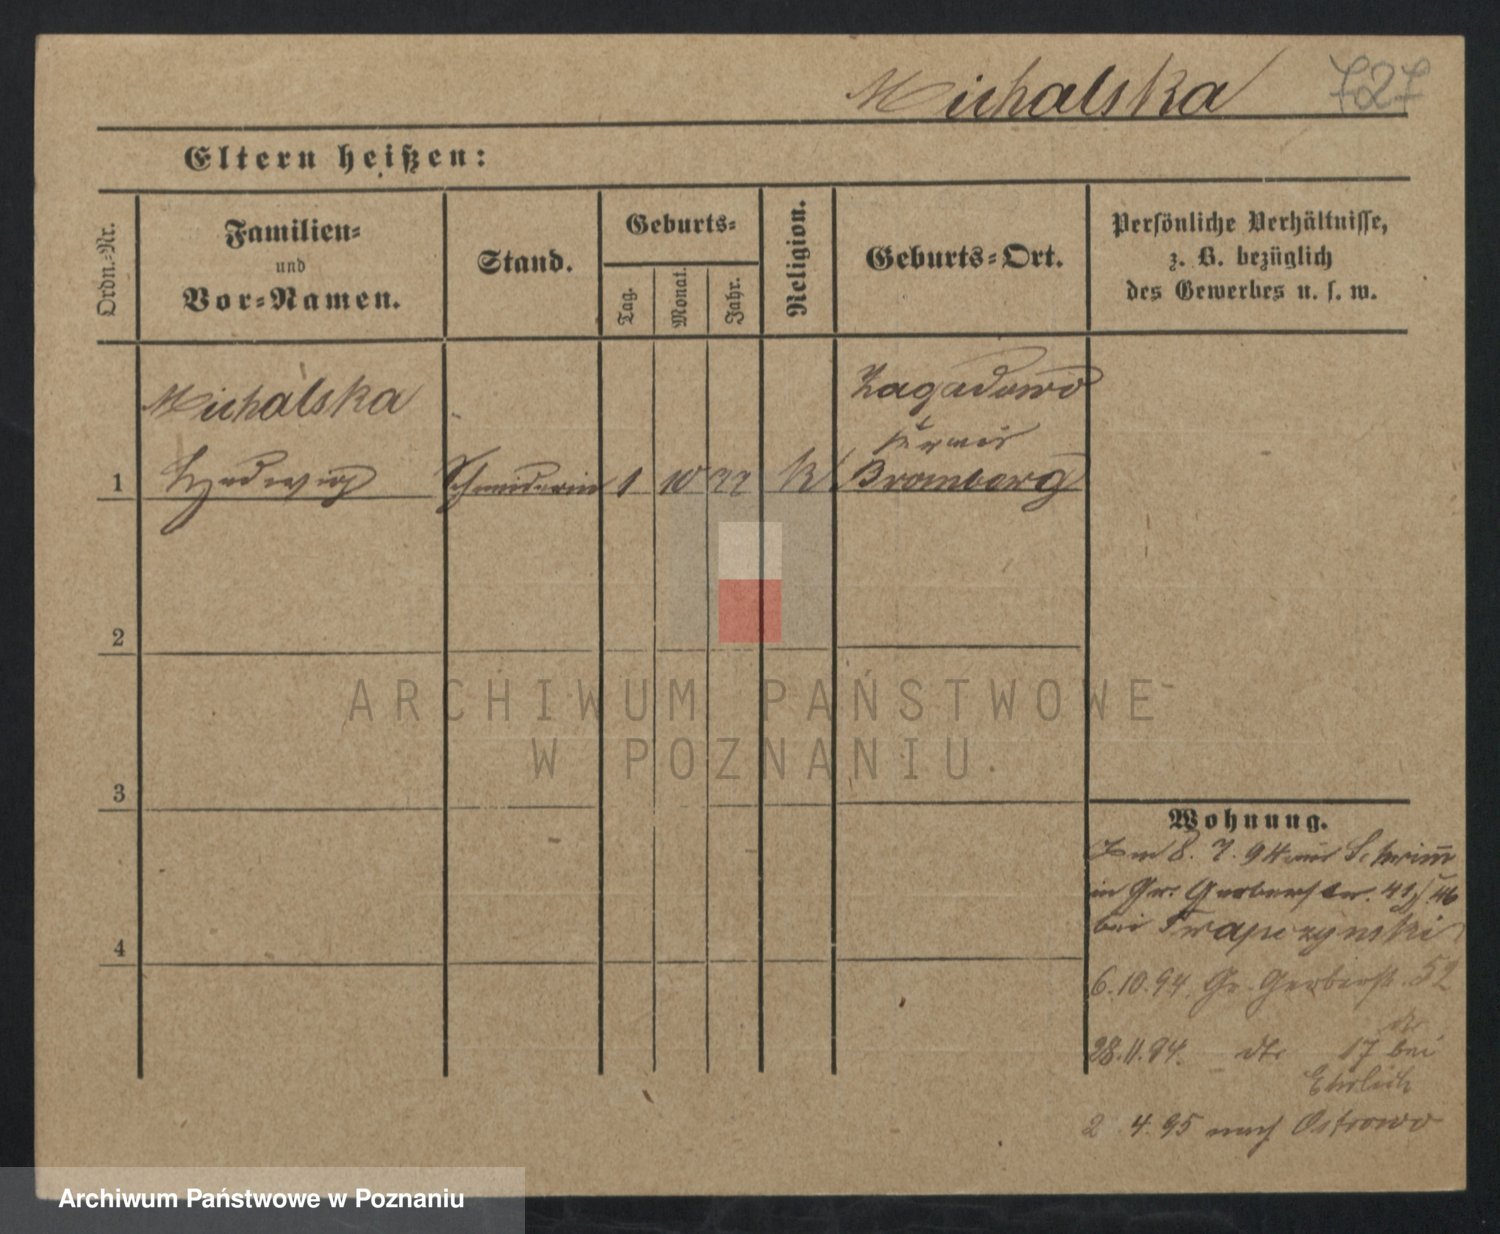 Michalska 727
Eltern heißen:
Ordn.-Nr.
Familien-
und
Vor-Namen.
Stand.
Geburts-
Tag.
Monat.
Jahr.
Religion.
Geburts-Ort.
Persönliche Verhältnisse,
z. B. bezüglich
des Gewerbes u. s. w.
Michalska
Hedwig
1
Schneiderin
1 10 77
K
Zagadowo
Bromberg
2
3
4
Wohnung.
8. 7. 94 aus Schrimm
in Gr. Gerberstr. 41
bei Trapczynski
6.10.94 Gr. Gerberstr. 52
28.11.94. dto 17 bei
Ehrlich
2 4. 95 nach Ostrowo
ARCHIWUM PAŃSTWOWE
W POZNANIU
Archiwum Państwowe w Poznaniu